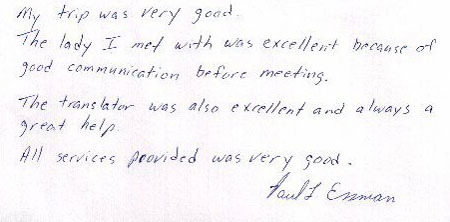 My trip was very good.
The lady I met with was excellent because of
good communication before meeting.
The translator was also excellent and always a
great help.
All services provided was very good.
Paul L Essman